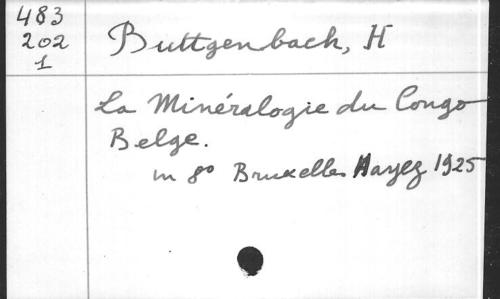 483
202
1
Buttgenbach, H
La Minéralogie du Congo
Belge.
in 8º Bruxelles Hayez 1925